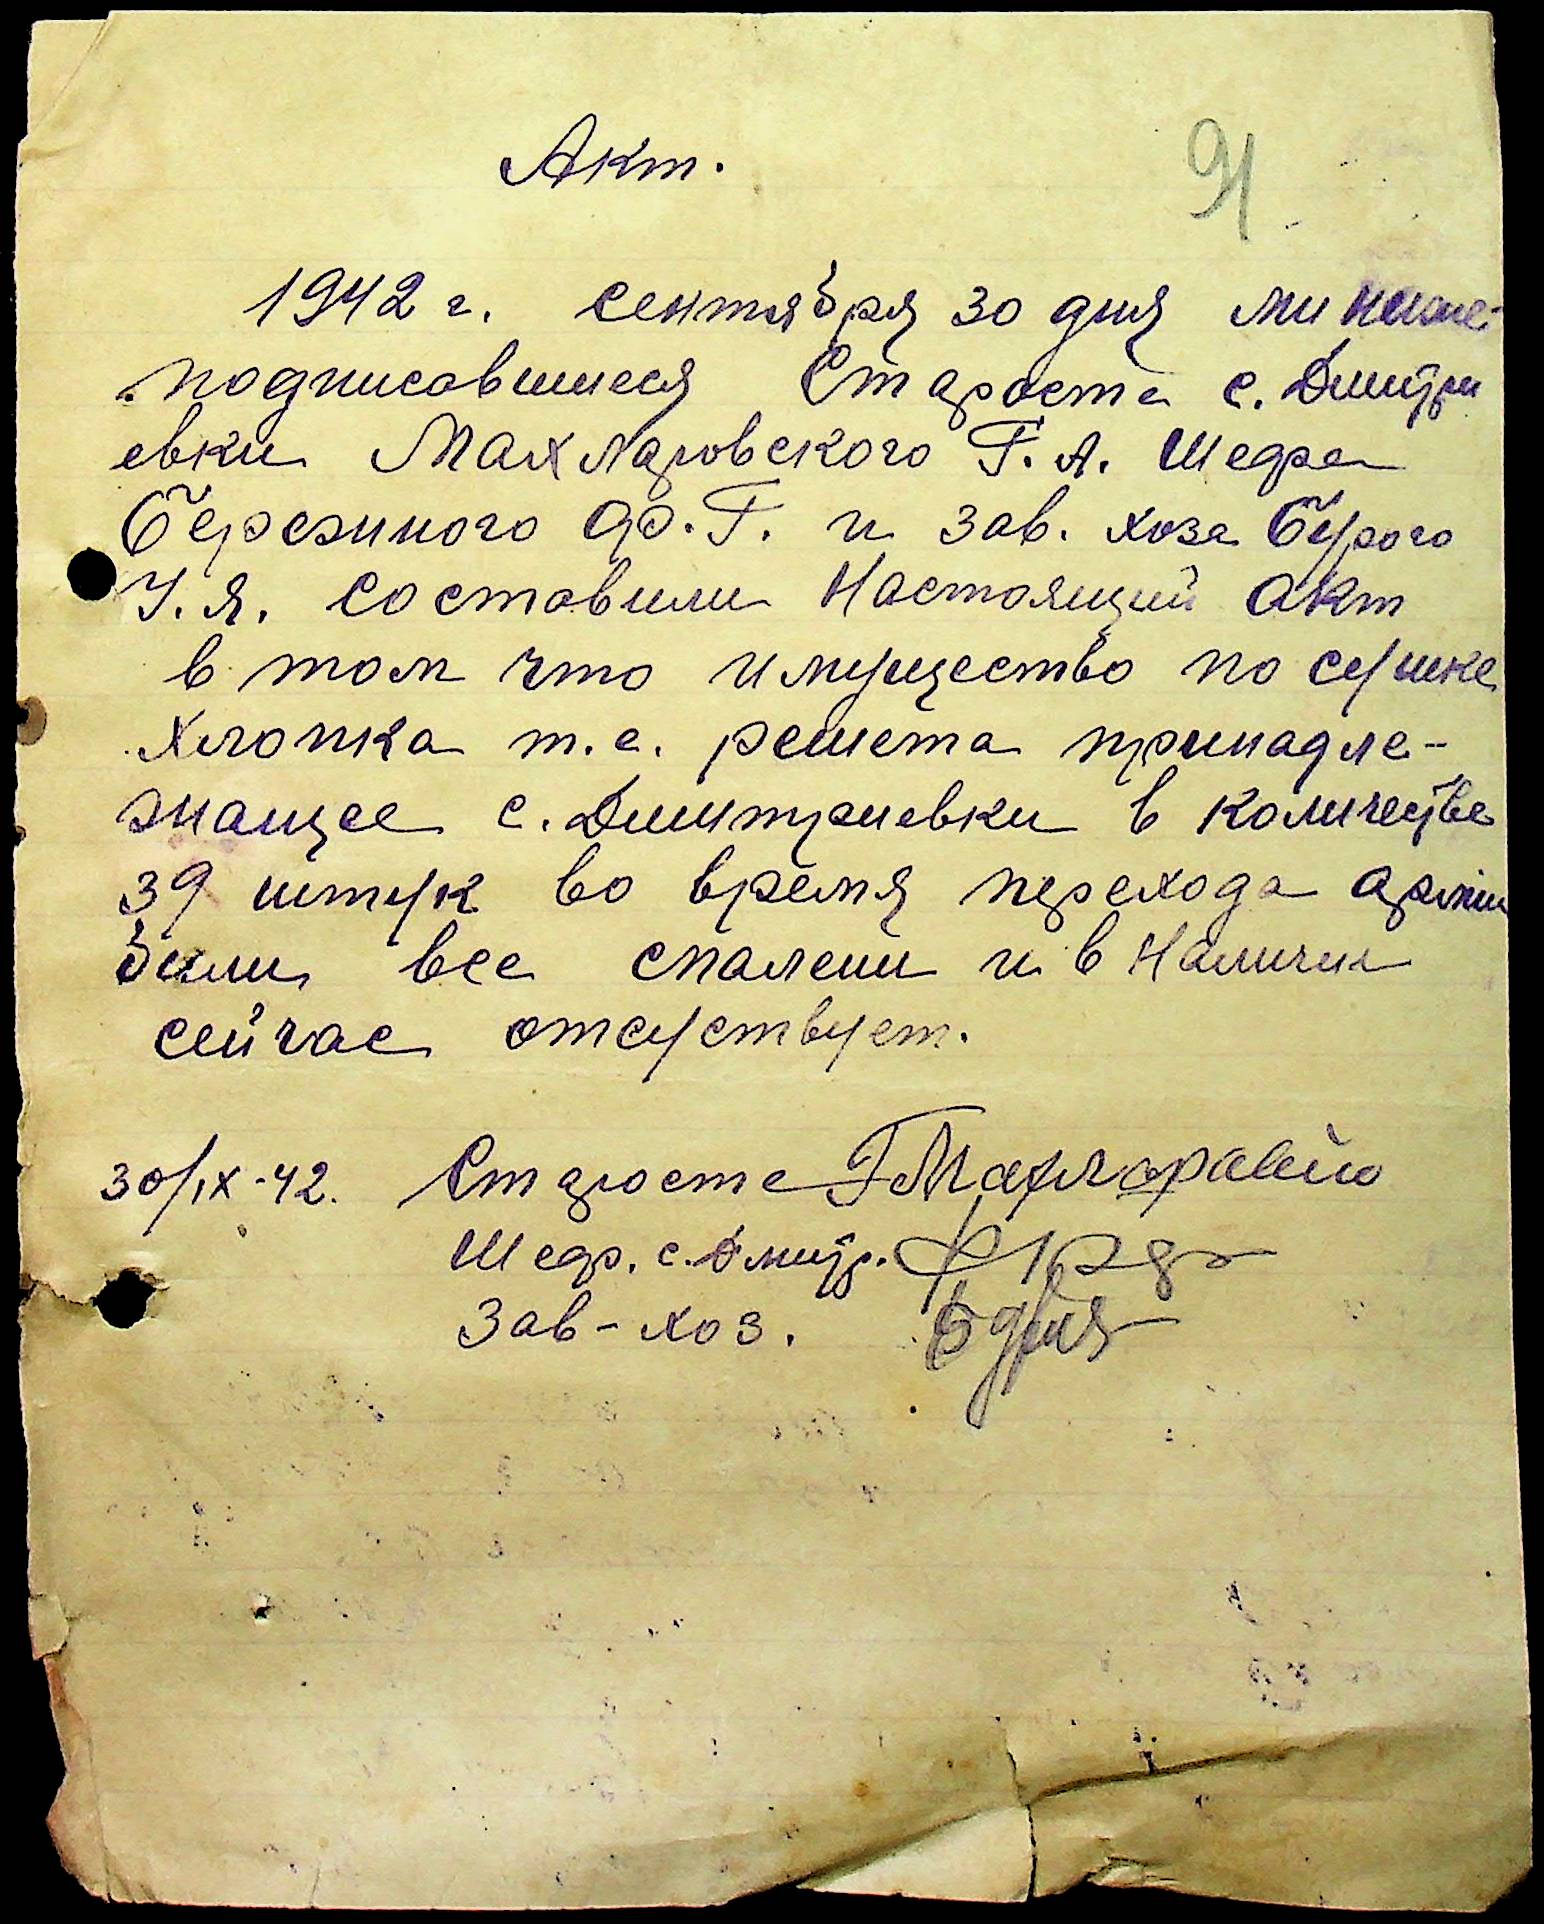 Акт.
91
1942 г. сентября 30 дня ми ниже-
подписавшиеся Староста с. Дмитри
евки Махларовского Г. А. Шефа
Бережного Ф. Г. и Зав. хоза Бурого
И. Я. составили Настоящий акт
в том что имущество по сушке
хлопка т. е. решета принадле-
жащее с. Дмитриевки в количестве
39 штук во время перехода армии
били все спалени и в Наличии
сейчас отсуствует.
30/IX-42. Староста
Шеф. с. Дмитр.
Зав-хоз.